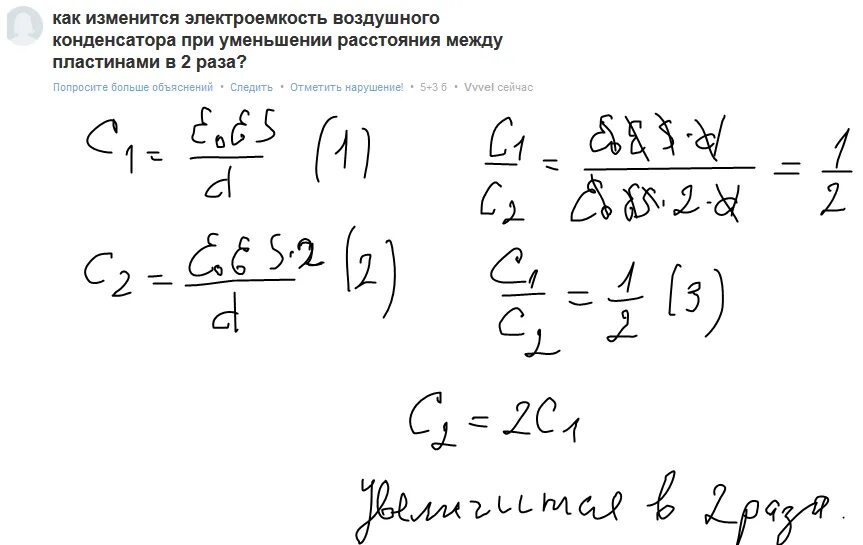 как изменится электроемкость воздушного
конденсатора при уменьшении расстояния между
пластинами в 2 раза?
Попросите больше объяснений • Следить • Отметить нарушение! • 5+3 б • Vvvel сейчас
C₁ = ε₀εS/d (1)
C₂ = ε₀εS·2/d (2)
C₁/C₂ = ε₀εS·d/ε₀εS·2·d = 1/2
C₁/C₂ = 1/2 (3)
C₂ = 2C₁
Увеличится в 2 раза.